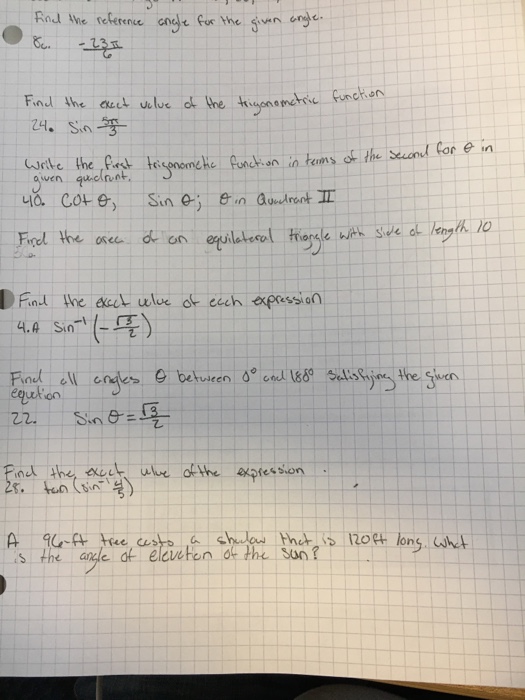 Find the reference angle for the given angle.
8c. -23π/6
Find the exact value of the trigonometric function
24. Sin 5π/3
Write the first trigonometric function in terms of the second for θ in
given quadrant.
40. Cot θ, Sin θ; θ in Quadrant II
Find the area of an equilateral triangle with side of length 10
Find the exact value of each expression
4.A Sin⁻¹(-√3/2)
Find all angles θ between 0° and 180° satisfying the given
equation
22. Sin θ = √3/2
Find the exact value of the expression.
28. tan (sin⁻¹ 4/5)
A 96-ft tree casts a shadow that is 120ft long. What
is the angle of elevation of the sun?